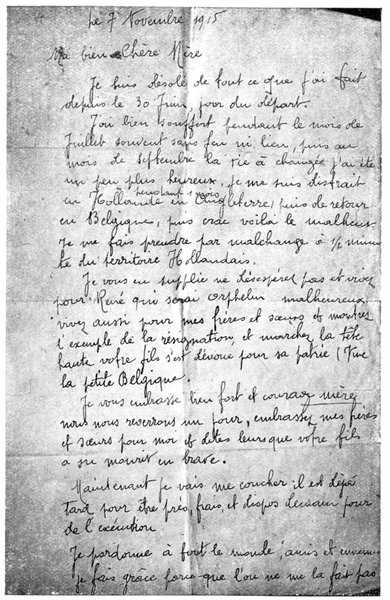 Le 7 Novembre 1915
Ma bien Chère Mère
Je suis désolé de tout ce que j'ai fait
depuis le 30 Juin, jour du départ.
J'ai bien souffert pendant le mois de
Juillet souvent sans feu ni lieu, puis au
mois de Septembre la vie a changée j'ai été
un peu plus heureux. Je me suis distrait
pendant 1 mois
en Hollande en Angleterre, puis de retour
en Belgique, puis crac voilà le malheur
Je me fais prendre par malchance a ½ minu
te du territoire Hollandais.
Je vous en supplie ne désespérez pas et vivez
pour René qui serai orphelin malheureux
vivez aussi pour mes frères et sœurs et montrez
l'exemple de la résignation, et marchez la tête
haute votre fils s'est dévoué pour sa patrie (Vive
la petite Belgique.
Je vous embrasse bien fort et courage mère
nous nous reverrons un jour, embrassez mes frères
et sœurs pour moi et dites leurs que votre fils
a su mourir en brave.
Maintenant je vais me coucher il est déjà
tard pour être près, frais, et dispos demain pour
de l'exécution
Je pardonne à tout le monde, amis et ennemis
je fais grâce parce que l'on ne me la fait pas